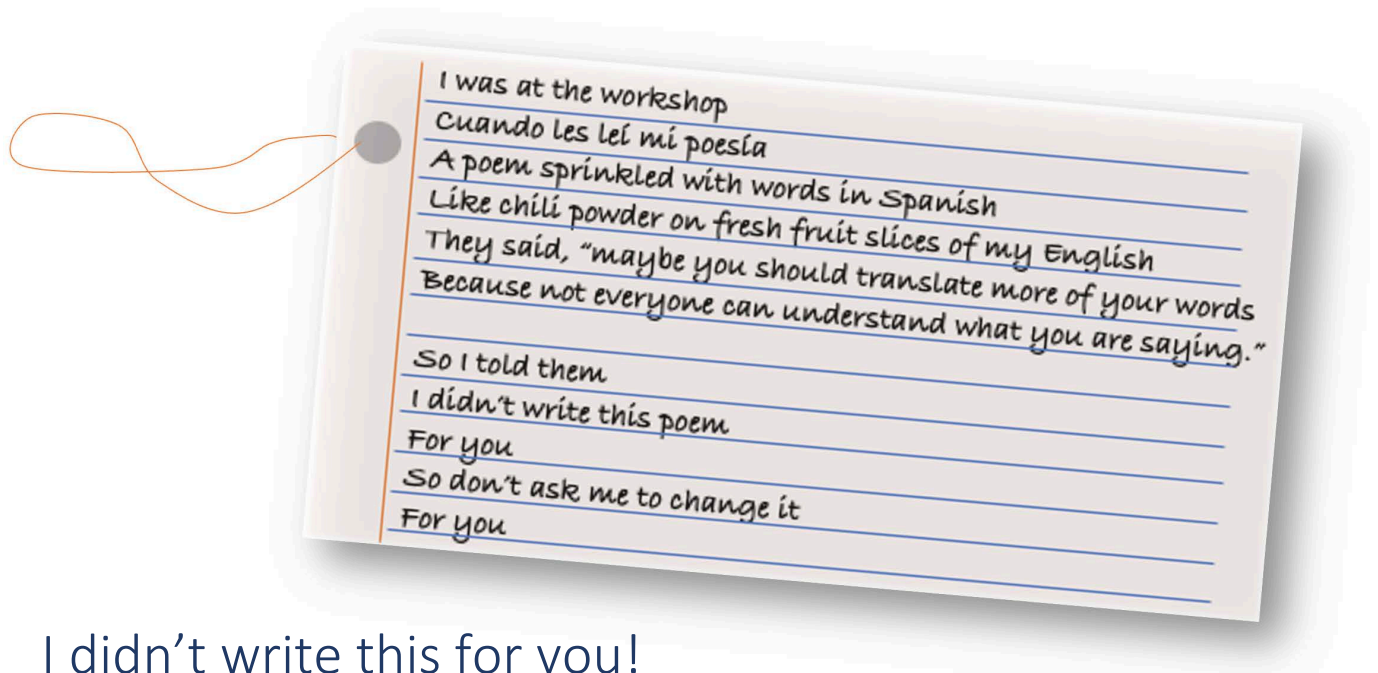 I was at the workshop
Cuando les leí mi poesía
A poem sprinkled with words in Spanish
Like chili powder on fresh fruit slices of my English
They said, “maybe you should translate more of your words
Because not everyone can understand what you are saying.”
So I told them
I didn’t write this poem
For you
So don’t ask me to change it
For you
I didn’t write this for you!